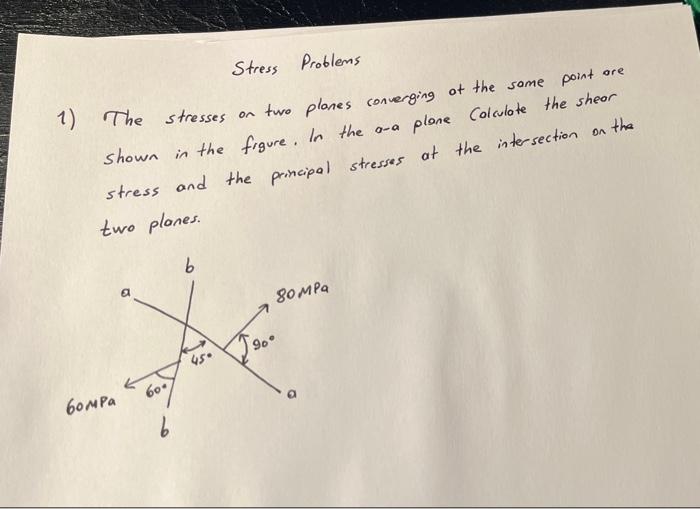 Stress Problems
1) The stresses on two planes converging at the same point are
shown in the figure. In the a-a plane Calculate the shear
stress and the principal stresses at the intersection on the
two planes.
b
a
80 MPa
90°
45°
60°
60 MPa
a
b